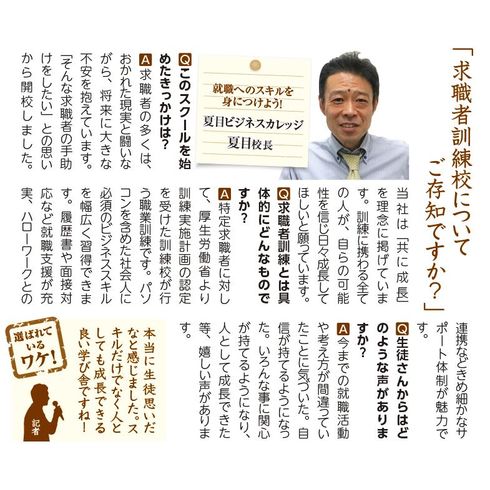 「求職者訓練校について
ご存知ですか？」
就職へのスキルを
身につけよう!
夏目ビジネスカレッジ
夏目校長
Qこのスクールを始
めたきっかけは？
A求職者の多くは、
おかれた現実と闘いな
がら、将来に大きな
不安を抱えています。
「そんな求職者の手助
けをしたい」との思い
から開校しました。
当社は「共に成長」
を理念に掲げていま
す。訓練に携わる全て
の人が、自らの可能
性を信じ日々成長して
ほしいと願っています。
Q求職者訓練とは具
体的にどんなもので
すか？
A特定求職者に対し
て、厚生労働省より
訓練実施計画の認定
を受けた訓練校が行
う職業訓練です。パソ
コンを含めた社会人に
必須のビジネススキル
を幅広く習得できま
す。履歴書や面接対
応など就職支援が充
実、ハローワークとの
連携などきめ細かなサ
ポート体制が魅力で
す。
Q生徒さんからはど
のような声がありま
すか？
A今までの就職活動
や考え方が間違ってい
たことに気づいた。自
信が持てるようになっ
た。いろんな事に関心
が持てるようになり、
人として成長できた
等、嬉しい声がありま
す。
本当に生徒思いだ
なと感じました。ス
キルだけでなく人と
しても成長できる
良い学び舎ですね!
選ばれて
いる
ワケ!
記者